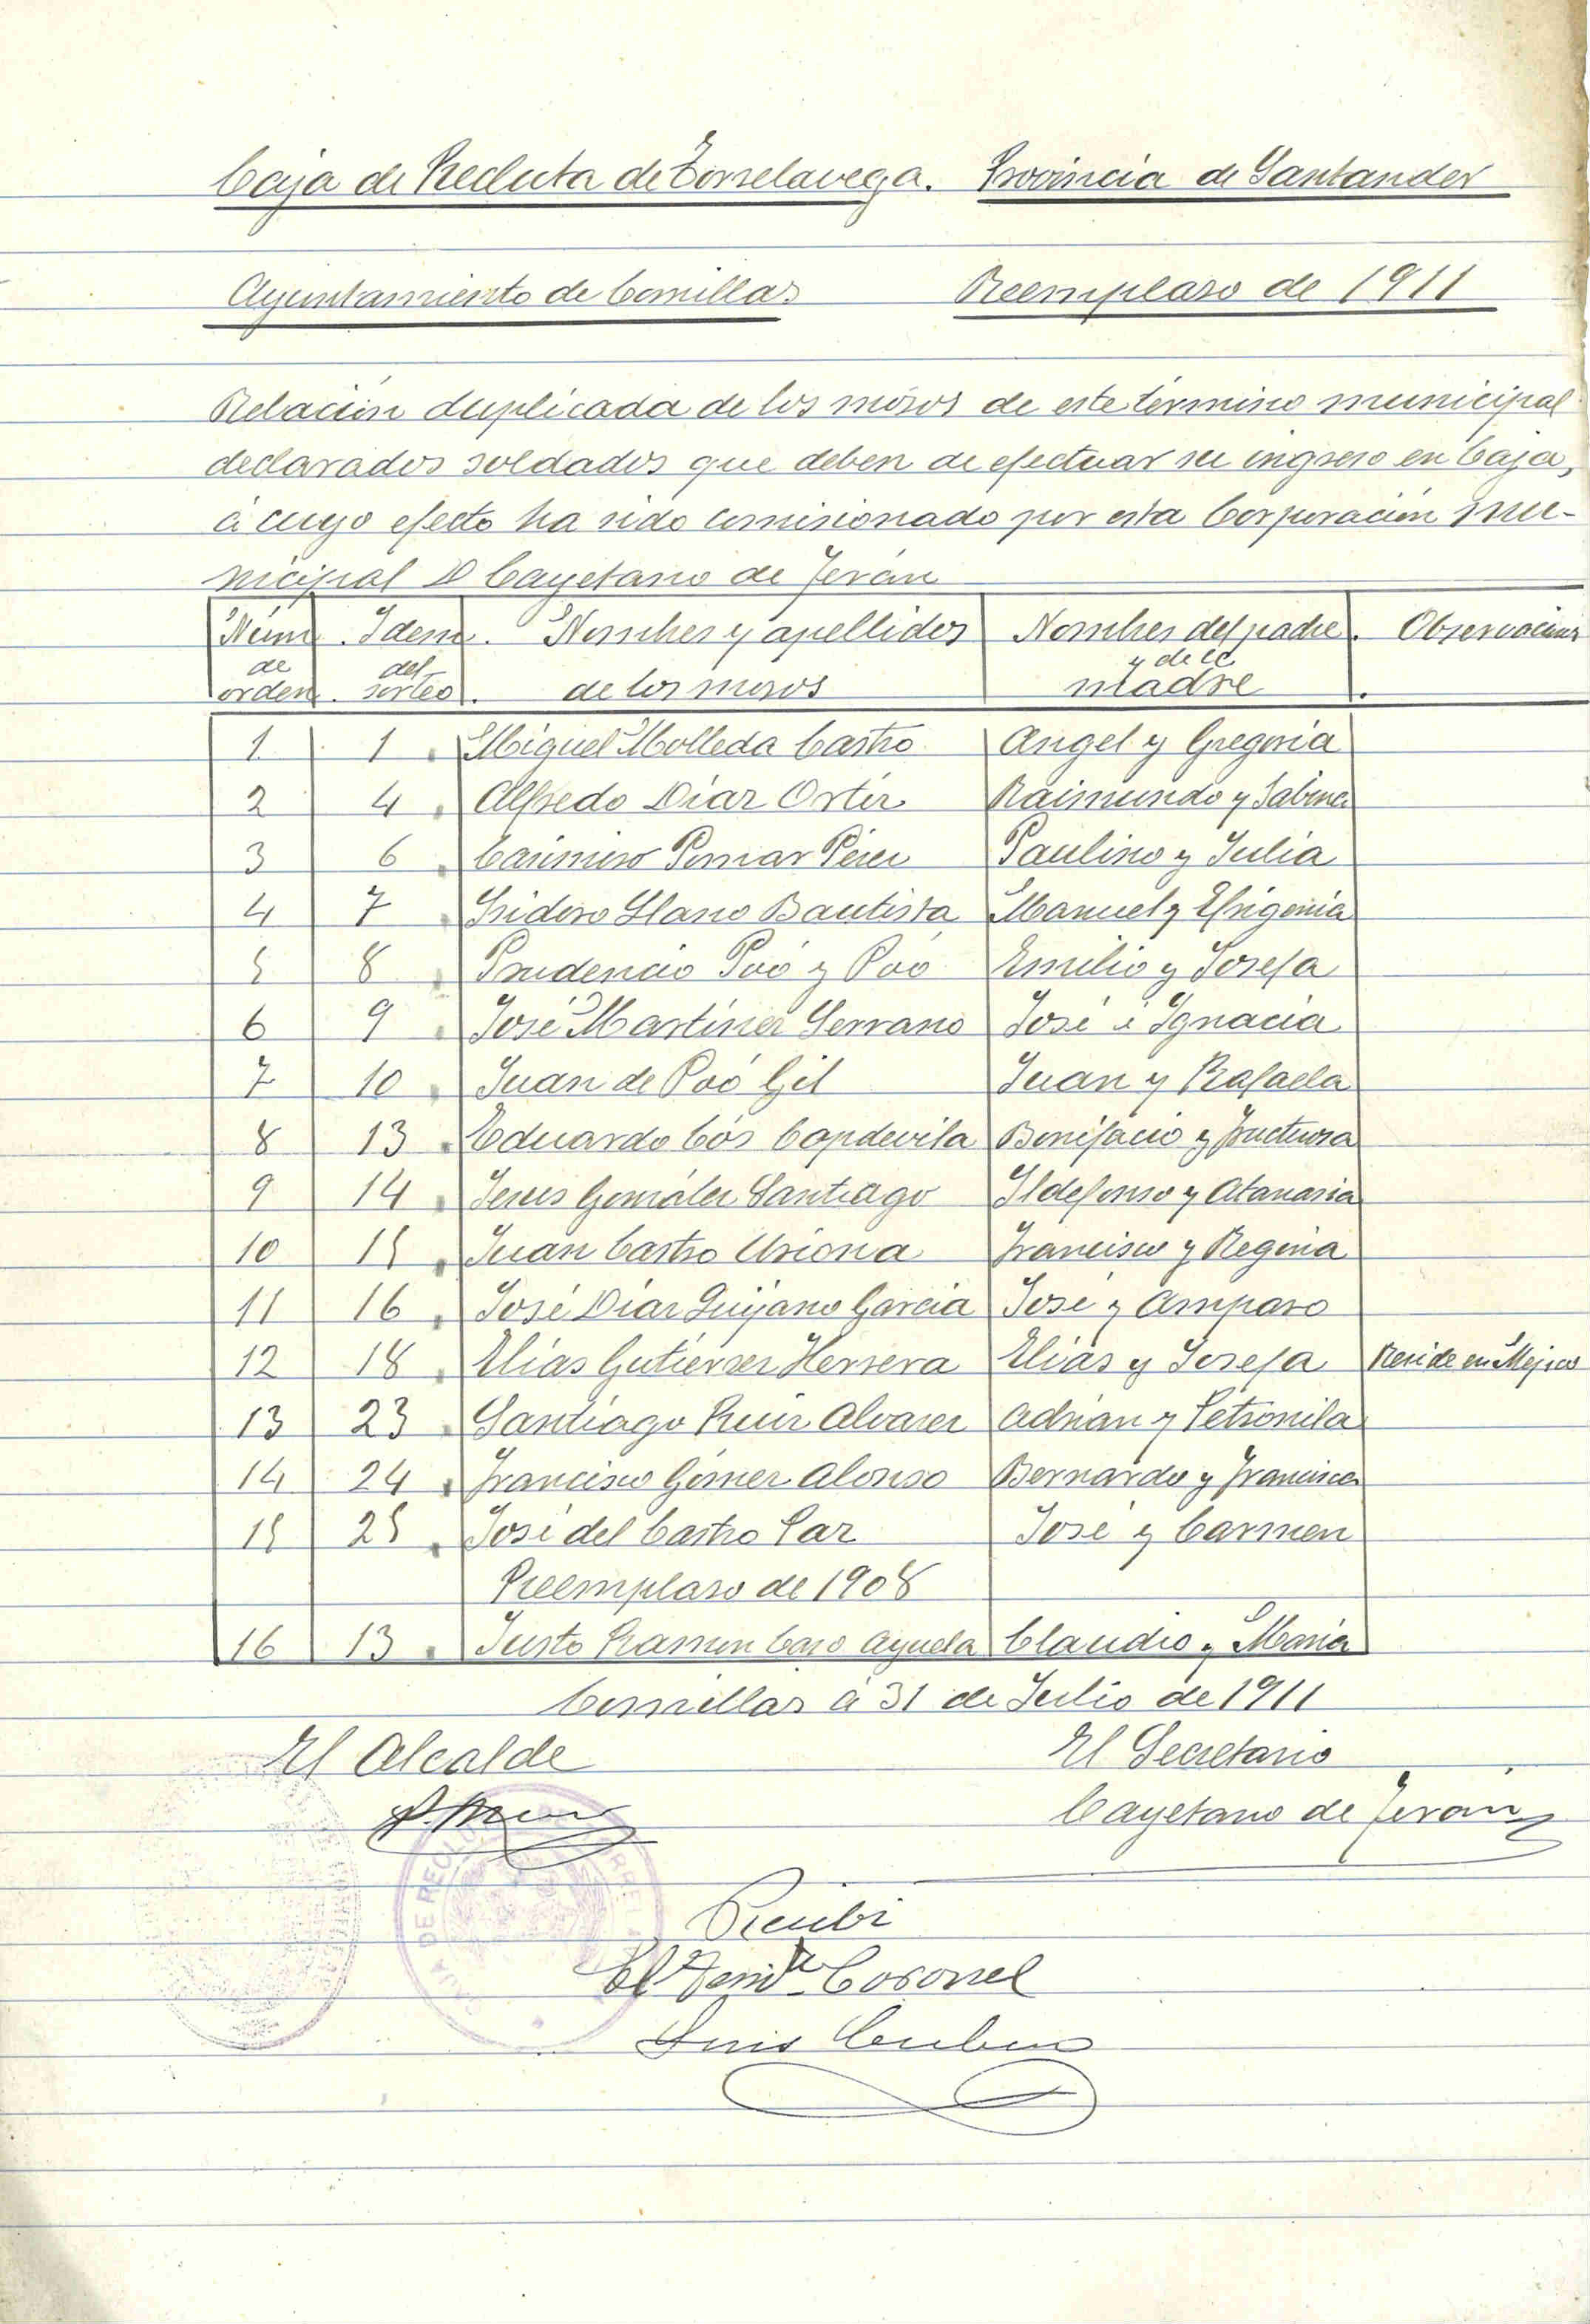 Caja de Recluta de Torrelavega. Provincia de Santander
Ayuntamiento de Comillas Reemplazo de 1911
Relación duplicada de los mozos de este término municipal
declarados soldados que deben de efectuar su ingreso en Caja,
á cuyo efecto ha sido comisionado por esta Corporación mu-
nicipal D Cayetano de Terán
Núm de orden. Idem del sorteo. Nombres y apellidos de los mozos Nombres del padre y de la madre. Observaciones
1 1 Miguel Molleda Castro Angel y Gregoria
2 4 Alfredo Díaz Ortiz Raimundo y Sabina
3 6 Casimiro Pomar Pérez Paulino y Julia
4 7 Isidoro Llano Bautista Manuel y Efigenia
5 8 Prudencio Poó y Poó Emilio y Josefa
6 9 José Martínez Serrano José é Ignacia
7 10 Juan de Poó Gil Juan y Rafaela
8 13 Eduardo Cós Capdevila Bonifacio y Fructuosa
9 14 Jesus González Santiago Ildefonso y Atanasia
10 15 Juan Castro Uriona Francisco y Regina
11 16 José Díaz Quijano García José y Amparo
12 18 Elías Gutiérrez Herrera Elías y Josefa Reside en Mejico
13 23 Santiago Ruiz Alvarez Adrián y Petronila
14 24 Francisco Gómez Alonso Bernardo y Francisca
15 25 José del Castro Paz José y Carmen
Reemplazo de 1908
16 13 Justo Ramon Caso Ayuela Claudio y María
Comillas á 31 de Julio de 1911
El Alcalde El Secretario
Cayetano de Terán
Recibí
El Teni.te Coronel
Luis
DE RECLU